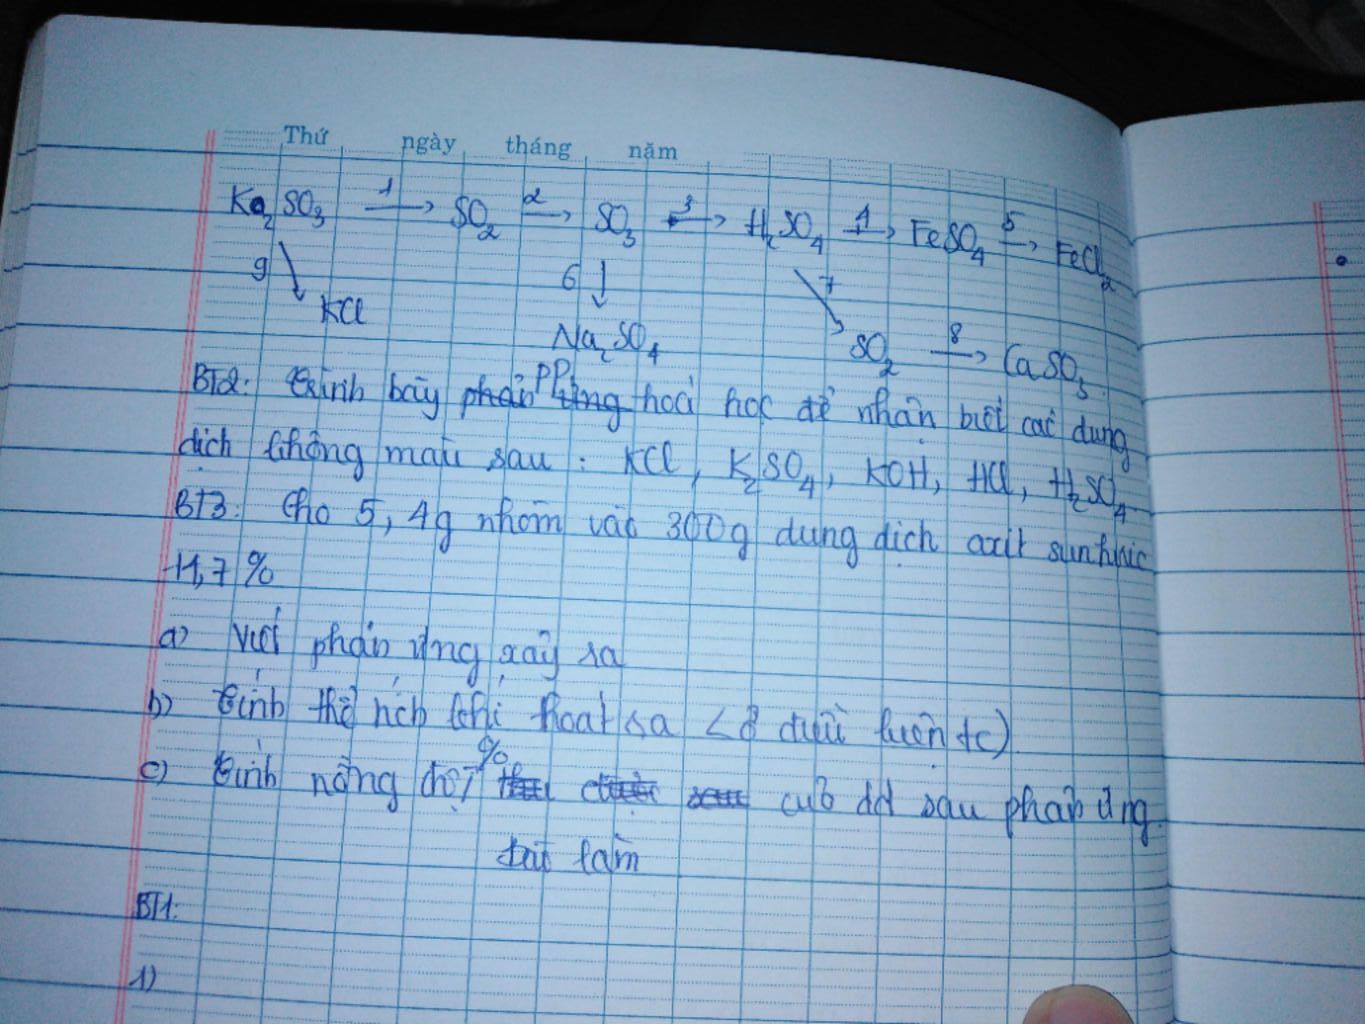 Thứ ngày tháng năm
K₂SO₃ 1→ SO₂ 2→ SO₃ 3→ H₂SO₄ 4→ FeSO₄ 5→ FeCl₂
9↘ KCl 6↓ Na₂SO₄ 7↘ SO₂ 8→ CaSO₃
BT2: trình bày PP hoá học để nhận biết các dung
dịch không màu sau: KCl, K₂SO₄, KOH, HCl, H₂SO₄
BT3: Cho 5,4g nhôm vào 300g dung dịch axit sunfuric
14,7%
a) Viết phản ứng xảy ra
b) tính thể tích khí thoát ra <ở điều kiện tc)
c) tính nồng độ % của dd sau phản ứng
bài làm
BT1:
1)